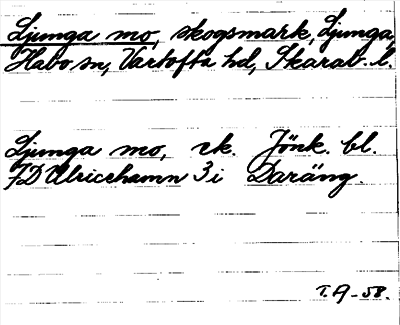 Ljunga mo, skogsmark, Ljunga,
Habo sn, Vartofta hd, Skarab. l.
Ljunga mo, ek. Jönk. bl.
7D Ulricehamn 3i Daräng.
T.A-58.